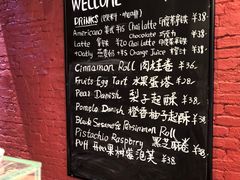 WELCOME
DRINKS (饮料·咖啡)
Americano 美式 ¥15 Chai Latte ¥38.
Latte 拿铁 ¥20 Chai Latte
+Oatly 燕麦奶 +¥5 Orange Juice 橙汁 ¥
Cinnamon Roll 肉桂卷 ¥36.
Fruits Egg Tart 水果蛋塔 ¥38.
Pear Danish 梨子起酥 ¥38.
Pomelo Danish 橙香柚子起酥 ¥38.
Black Sesame & Persimmon Roll
Pistachio Raspberry 黑芝麻卷
Puff 开心果树莓泡芙 ¥38.